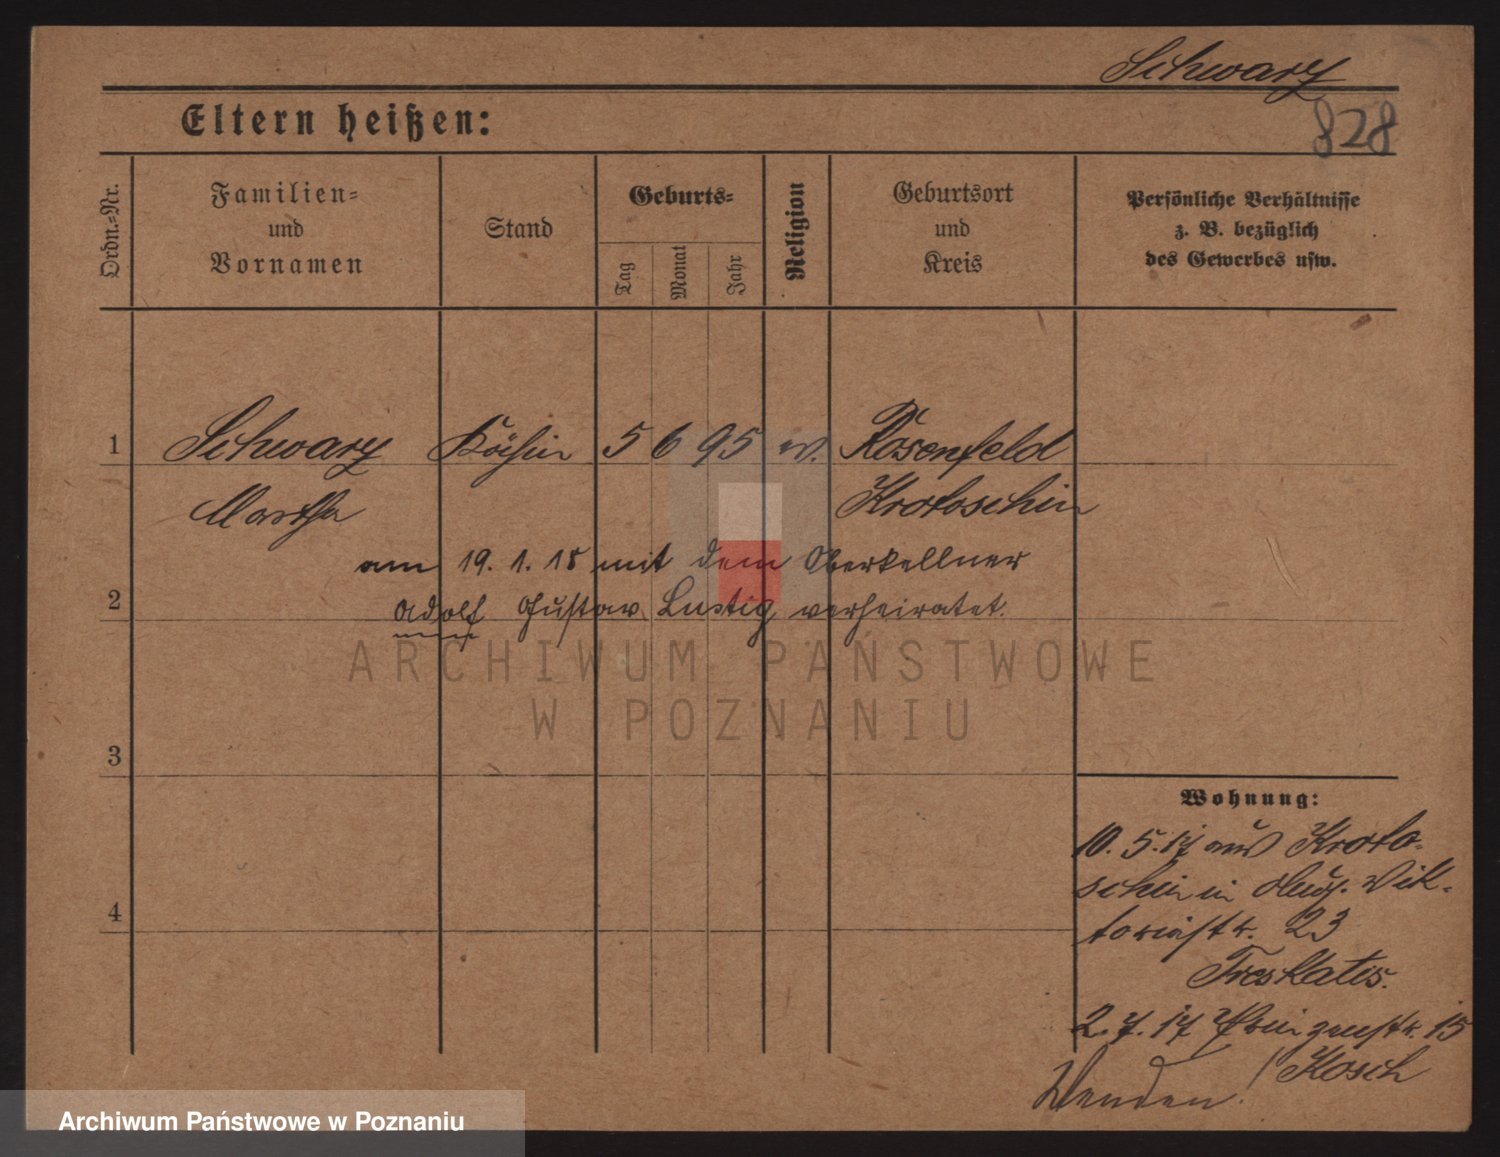 Schwarz
828
Eltern heißen:
Ordn.-Nr.
Familien-
und
Vornamen
Stand
Geburts-
Tag
Monat
Jahr
Religion
Geburtsort
und
Kreis
Persönliche Verhältnisse
z. B. bezüglich
des Gewerbes usw.
1 Schwarz Köchin 5 6 95 ev. Rosenfeld
Martha Krotoschin
am 19. 1. 18 mit dem Oberkellner
2 Adolf Gustav Lustig verheiratet.
ARCHIWUM PAŃSTWOWE
W POZNANIU
3
4
Wohnung:
10. 5. 17 aus Kroto-
schin in Aug. Vik-
toriastr. 23
Treskatis.
2. 7. 17 Prinzenstr. 15
Kosch
Wenden!
Archiwum Państwowe w Poznaniu